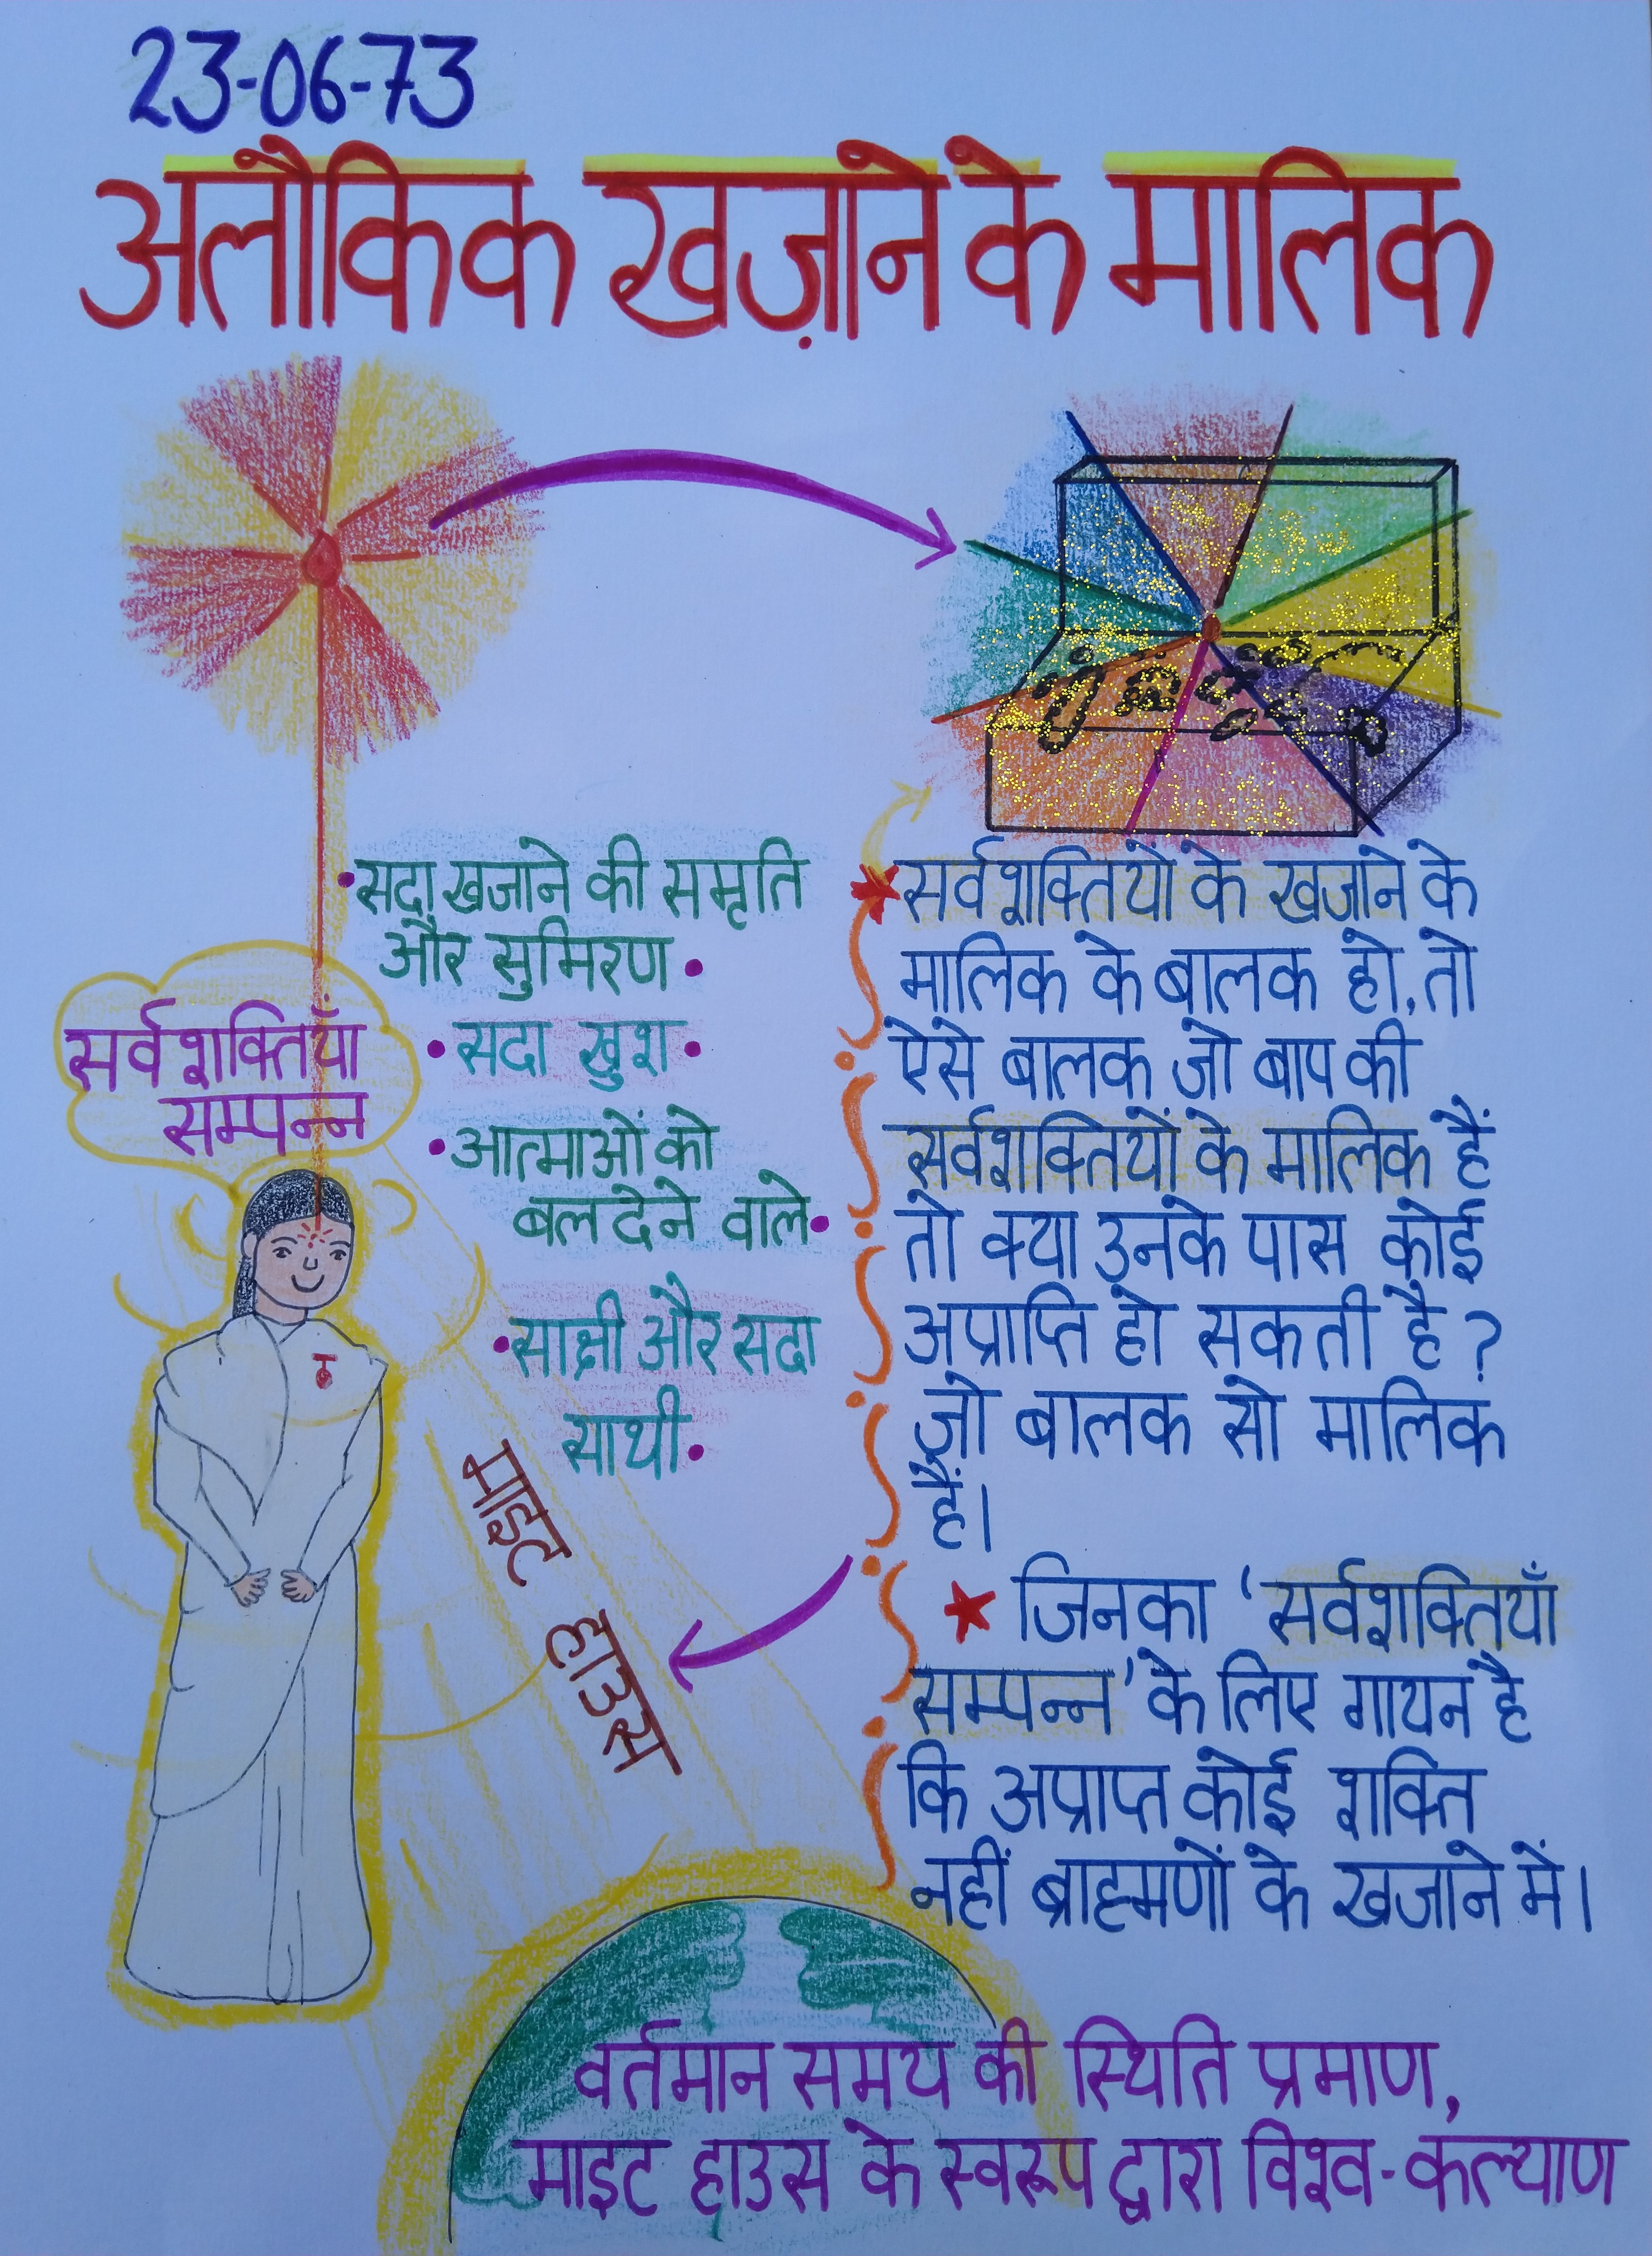 23-06-73
अलौकिक खज़ाने के मालिक
सदा खजाने की समृति
और सुमिरण
सदा खुश
आत्माओं को
बल देने वाले
साक्षी और सदा
साथी
सर्वशक्तियाँ
सम्पन्न
माइट हाउस
सर्वशक्तियों के खजाने के
मालिक के बालक हो, तो
ऐसे बालक जो बाप की
सर्वशक्तियों के मालिक हैं
तो क्या उनके पास कोई
अप्राप्ति हो सकती है?
जो बालक सो मालिक
हैं।
जिनका 'सर्वशक्तियाँ
सम्पन्न' के लिए गायन है
कि अप्राप्त कोई शक्ति
नहीं ब्राह्मणों के खजाने में।
वर्तमान समय की स्थिति प्रमाण,
माइट हाउस के स्वरूप द्वारा विश्व-कल्याण